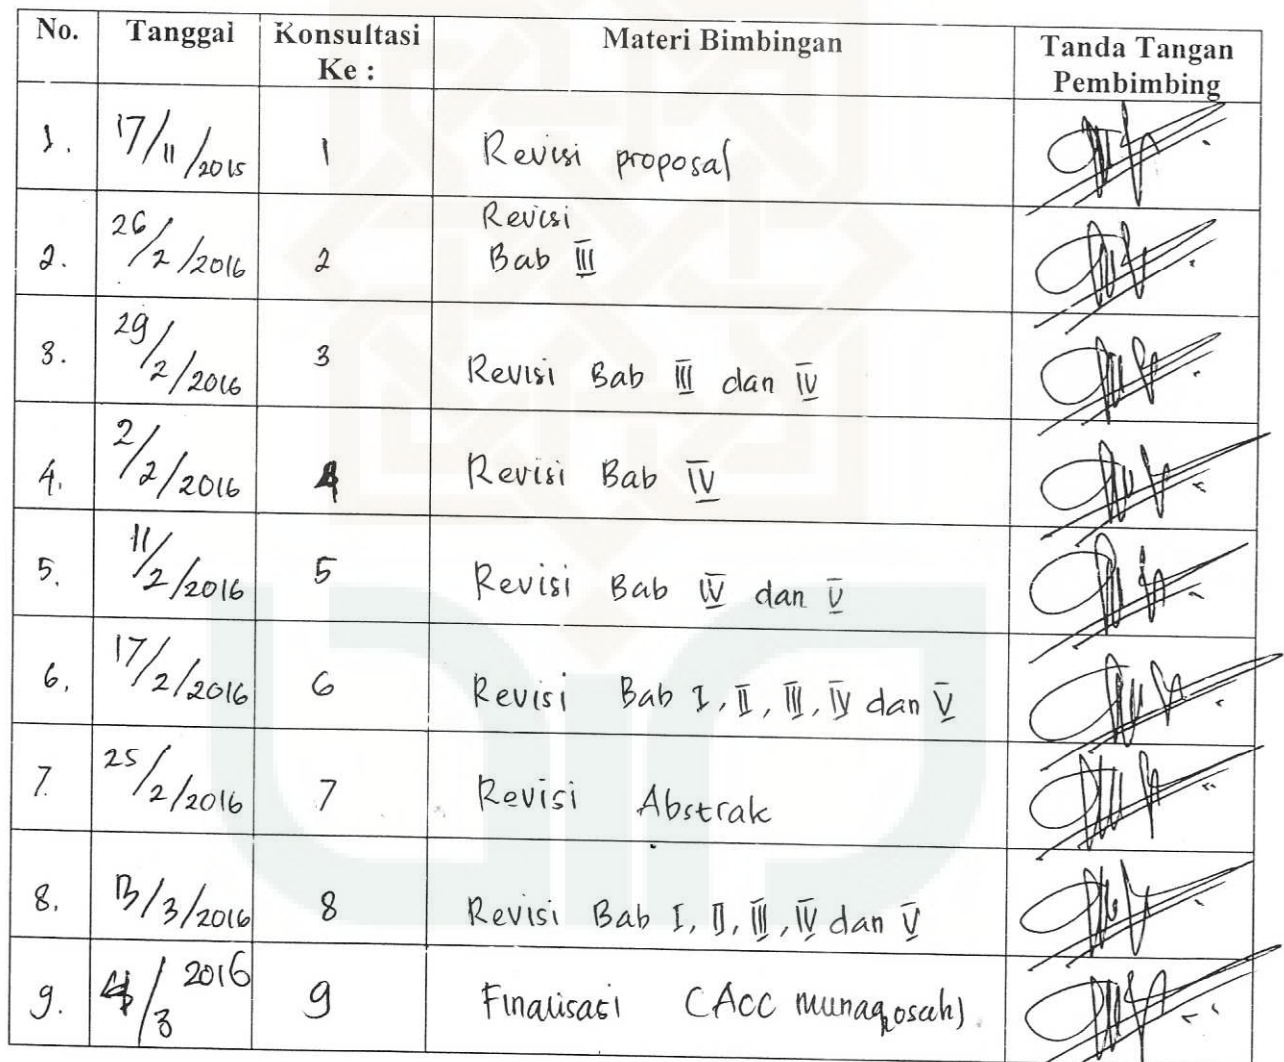 No. Tanggal Konsultasi Ke : Materi Bimbingan Tanda Tangan Pembimbing
1. 17/11/2015 1 Revisi proposal
2. 26/2/2016 2 Revisi Bab III
3. 29/2/2016 3 Revisi Bab III dan IV
4. 2/2/2016 4 Revisi Bab IV
5. 11/2/2016 5 Revisi Bab IV dan V
6. 17/2/2016 6 Revisi Bab I, II, III, IV dan V
7. 25/2/2016 7 Revisi Abstrak
8. /3/2016 8 Revisi Bab I, II, III, IV dan V
9. /3 2016 9 Finalisasi (Acc munaqosah)